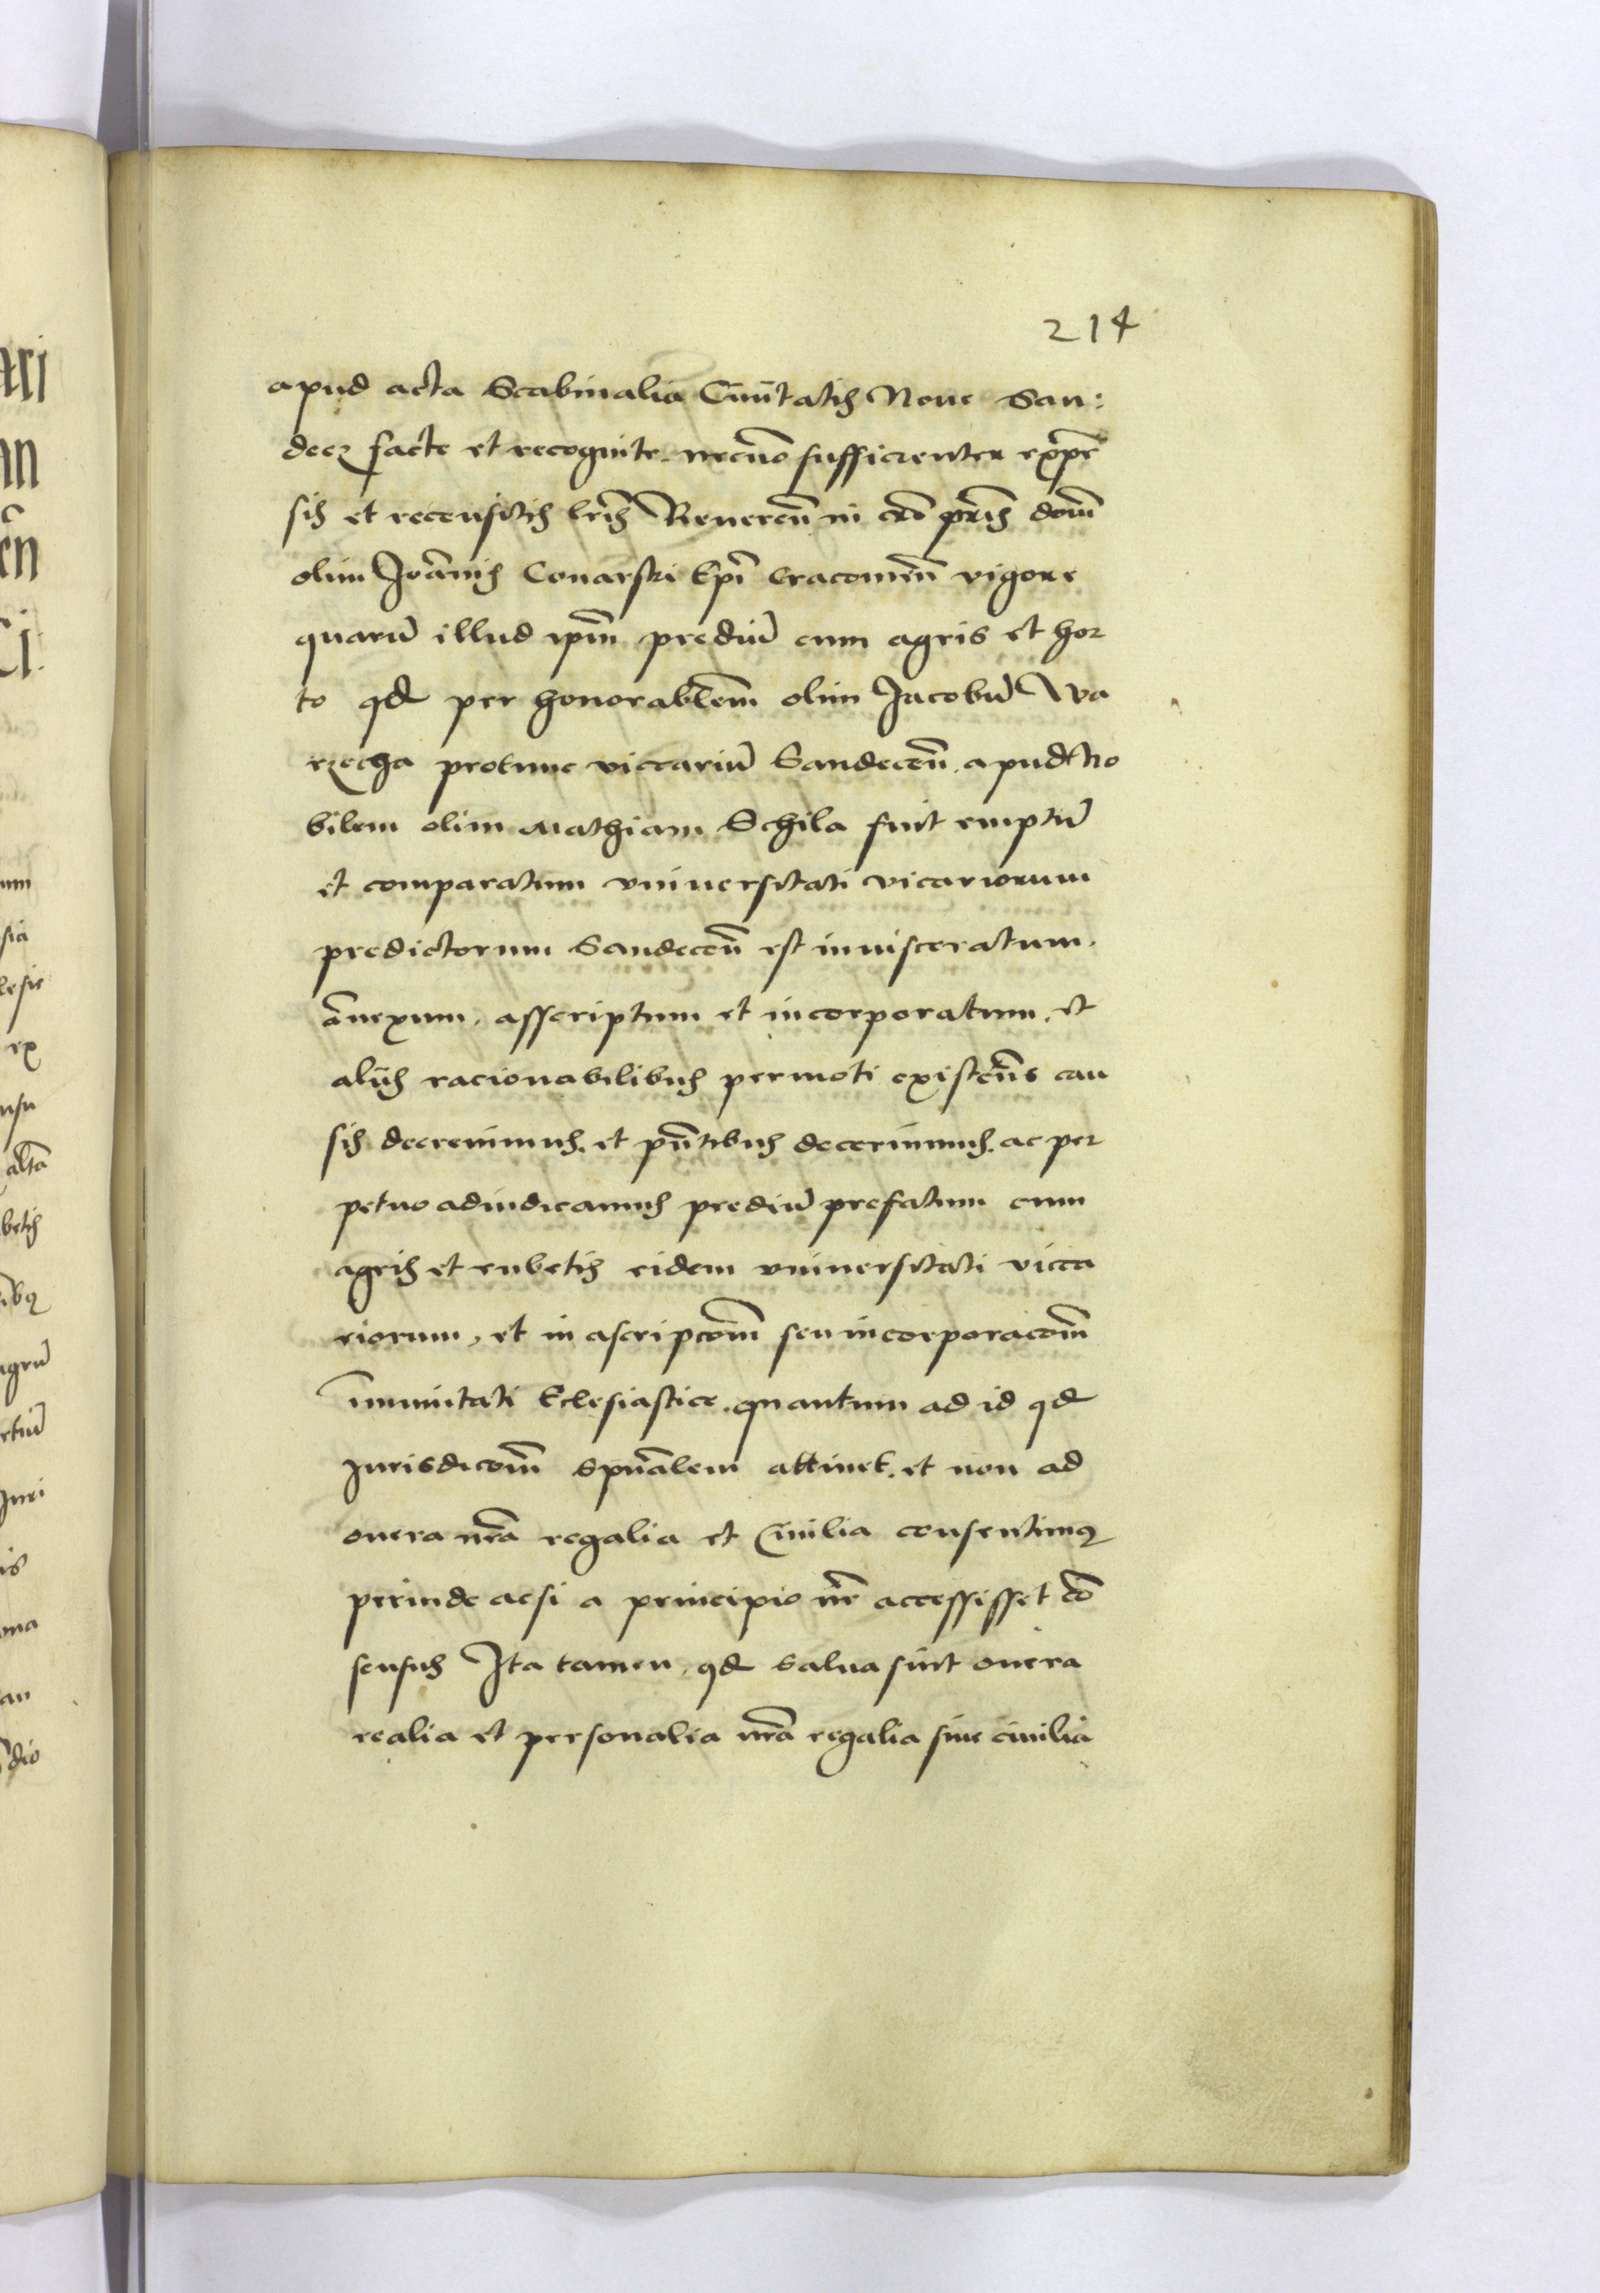 214
apud acta Scabinalia Ciuitatis Noue San:
decz facte et recognite. necno͞ sufficienter exp͞re
sis et recensitis lr͞is Reueren͞ in cr͞o pr͞is dom͞
olim Joa͞nis Conarski Ep͞i Cracouien͞ vigore
quaru͞ illud ip͞m prediu͞ cum agris et hor
to qd per honorabilem͞ olim Jacobu͞ Wa
rzecha protunc viccariu͞ Sandecen͞. apud No
bilem olim Mathiam Schila fuit emptu͞
et comparatum vniuersitati vicariorum
predictorum Sandecen͞ est inuisceratum.
a͞nexum, asscriptum et incorporatum, et
alijs racionabilibus permoti existen͞s cau
sis decreuimus. et pn͞tibus decernimus. ac per
petuo adiudicamus prediu͞ prefatum cum
agris et rubetis eidem vniuersitati vicca
riorum, et in ascripco͞m seu incorporaco͞m
i͞munitati Eclesiastice. quantum ad id qd
Jurisdico͞m spu͞alem attinet. et non ad
onera nr͞a regalia et Ciuilia consentimus
perinde acsi a principio nr͞e accessisset co͞
sensus Ita tamen, qd salua sint onera
realia et personalia nr͞a regalia siue ciuilia
ari
an
en
ci.
num
sia
lesie
ex
nsu
alta͞
betis
ibus
agru͞
etiu͞
Juri
is
ona
an
dio